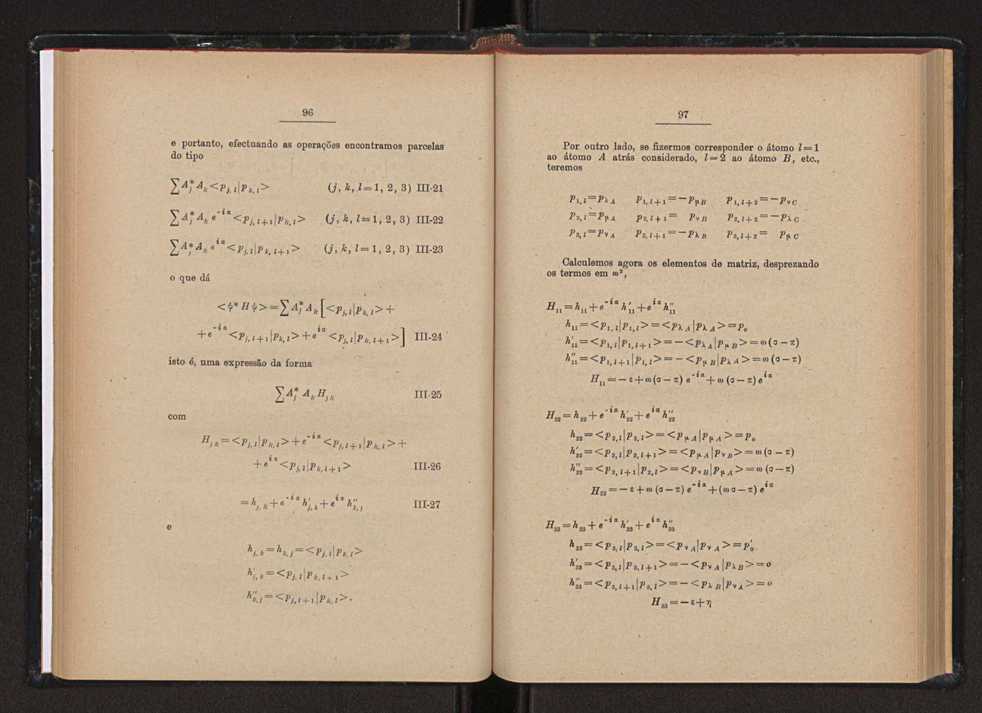 96
e portanto, efectuando as operações encontramos parcelas
do tipo
∑ A*ⱼ Aₖ <pⱼ,ₗ|pₖ,ₗ> (j, k, l=1, 2, 3) III-21
∑ A*ⱼ Aₖ e^{-iα} <p_{j,l+1}|p_{k,l}> (j, k, l=1, 2, 3) III-22
∑ A*ⱼ Aₖ e^{iα} <p_{j,l}|p_{k,l+1}> (j, k, l=1, 2, 3) III-23
o que dá
<ψ* H ψ> = ∑ A*ⱼ Aₖ [<p_{j,l}|p_{k,l}> +
+ e^{-iα} <p_{j,l+1}|p_{k,l}> + e^{iα} <p_{j,l}|p_{k,l+1}>] III-24
isto é, uma expressão da forma
∑ A*ⱼ Aₖ H_{jk} III-25
com
H_{jk} = <p_{j,l}|p_{k,l}> + e^{-iα} <p_{j,l+1}|p_{k,l}> +
+ e^{iα} <p_{j,l}|p_{k,l+1}> III-26
= h_{j,k} + e^{-iα} h'_{j,k} + e^{iα} h''_{k,j} III-27
e
h_{j,k} = h_{k,j} = <p_{j,l}|p_{k,l}>
h'_{j,k} = <p_{j,l}|p_{k,l+1}>
h''_{k,j} = <p_{j,l+1}|p_{k,l}>.
97
Por outro lado, se fizermos corresponder o átomo l=1
ao átomo A atrás considerado, l=2 ao átomo B, etc.,
teremos
p_{1,l} = p_{λA} p_{1,l+1} = −p_{μB} p_{1,l+2} = −p_{νC}
p_{2,l} = p_{μA} p_{2,l+1} = p_{νB} p_{2,l+2} = −p_{λC}
p_{3,l} = p_{νA} p_{3,l+1} = −p_{λB} p_{3,l+2} = p_{μC}
Calculemos agora os elementos de matriz, desprezando
os termos em ω²,
H₁₁ = h₁₁ + e^{-iα} h'₁₁ + e^{iα} h''₁₁
h₁₁ = <p_{1,l}|p_{1,l}> = <p_{λA}|p_{λA}> = p₀
h'₁₁ = <p_{1,l}|p_{1,l+1}> = −<p_{λA}|p_{μB}> = ω(σ−π)
h''₁₁ = <p_{1,l+1}|p_{1,l}> = −<p_{μB}|p_{λA}> = ω(σ−π)
H₁₁ = −ε + ω(σ−π) e^{-iα} + ω(σ−π) e^{iα}
H₂₂ = h₂₂ + e^{-iα} h'₂₂ + e^{iα} h''₂₂
h₂₂ = <p_{2,l}|p_{2,l}> = <p_{μA}|p_{μA}> = p₀
h'₂₂ = <p_{2,l}|p_{2,l+1}> = <p_{μA}|p_{νB}> = ω(σ−π)
h''₂₂ = <p_{2,l+1}|p_{2,l}> = <p_{νB}|p_{μA}> = ω(σ−π)
H₂₂ = −ε + ω(σ−π) e^{-iα} + (ωσ−π) e^{iα}
H₃₃ = h₃₃ + e^{-iα} h'₃₃ + e^{iα} h''₃₃
h₃₃ = <p_{3,l}|p_{3,l}> = <p_{νA}|p_{νA}> = p'₀
h'₃₃ = <p_{3,l}|p_{3,l+1}> = −<p_{νA}|p_{λB}> = o
h''₃₃ = <p_{3,l+1}|p_{3,l}> = −<p_{λB}|p_{νA}> = o
H₃₃ = −ε + η